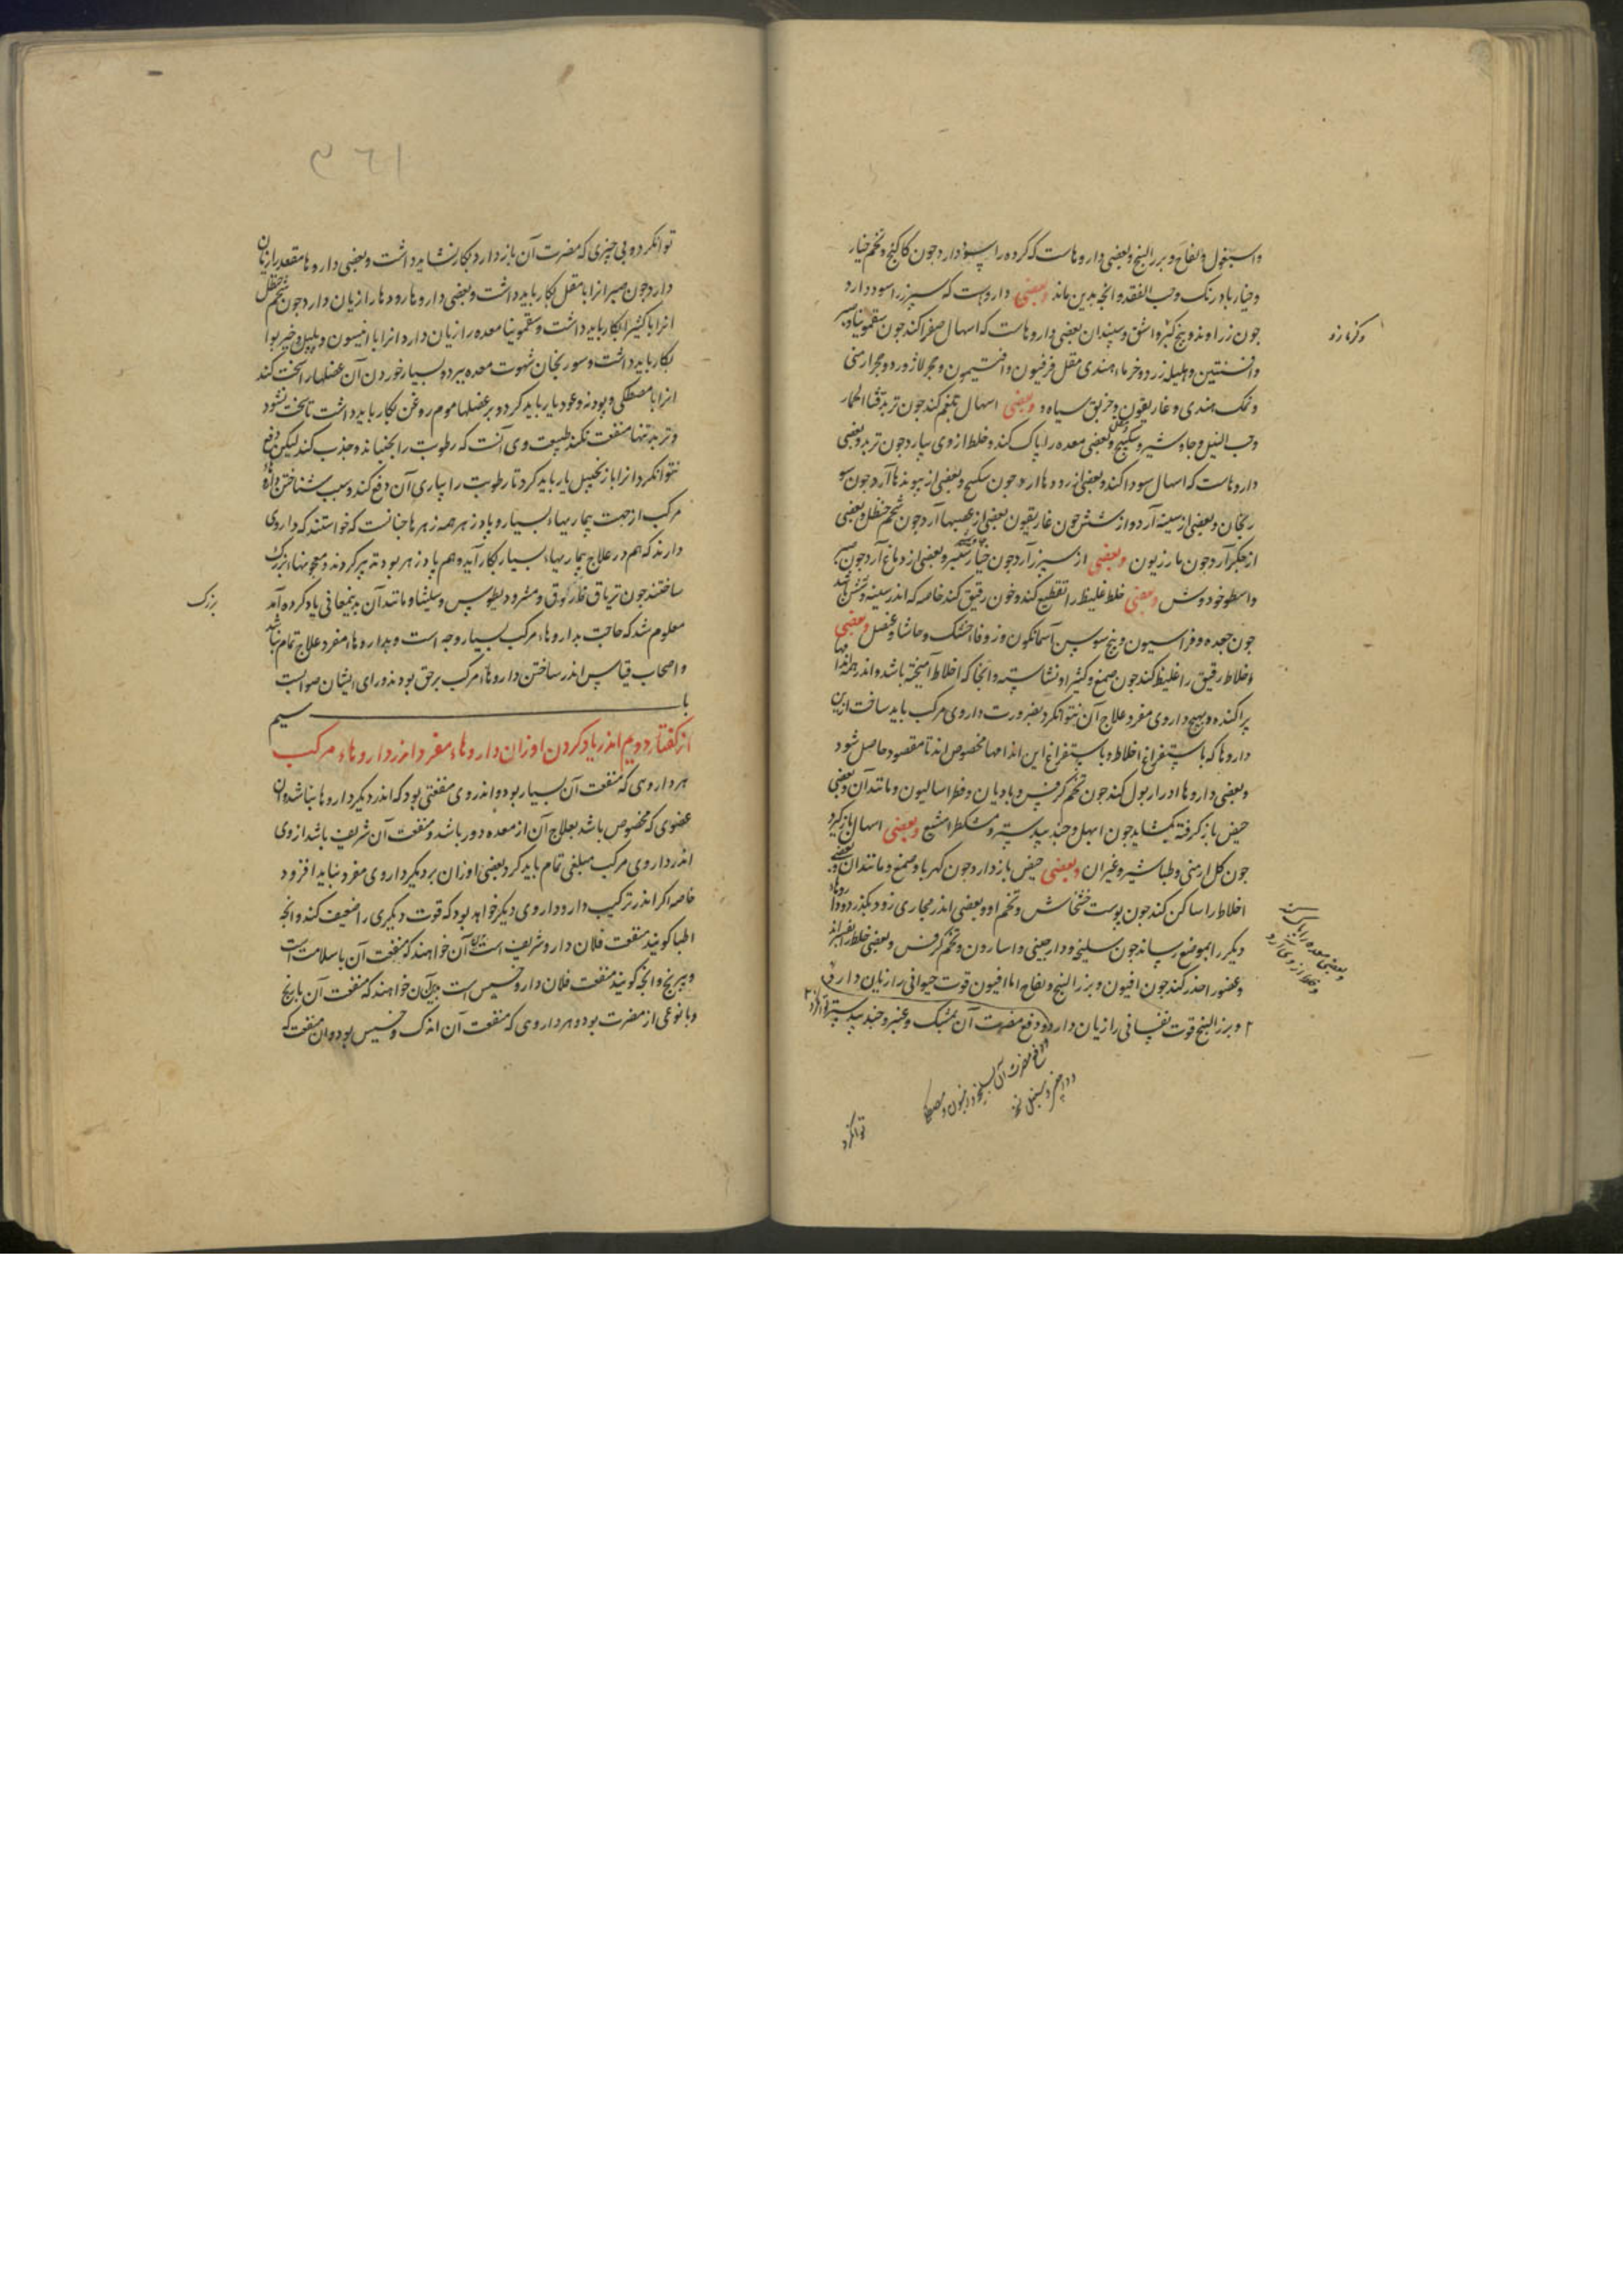 واسبغول و لفاح و بزر البنج و بعضی داروهاست که گرده را سود دارد جون کاکنج و تخم خیار
و خیار بادرنک و حب الفقد و انجه بدین ماند وبعضی داروست که سبرز را سود دارد
جون زراوند و بیخ کبر و اشق و سپندان بعضی داروهاست که اسهال صفرا کند جون سقمونیا و صبر
و افسنتین و هلیله زرد و خرماء هندی مقل فرفیون و افتیمون و حجر لاژورد و حجر ارمنی
و نمک هندی و غاریقون و خربق سیاه و وبعضی اسهال بلغم کند جون تربد قثا الحمار
و حب النیل و جاوشیر و سکبینج و بعضی معده را پاک کند و خلط از وی بیارد جون تربد و بعضی
داروهاست که اسهال سودا کند و بعضی از رودها ارد جون سکبینج و بعضی از پیوندها آرد جون سو
رنجان و بعضی از سینه آرد و از شش جون غاریقون بعضی از عصبها آرد جون شحم حنظل و بعضی
از جکر آرد جون مازریون وبعضی از سبرز آرد جون خیارشنبر و بعضی از دماغ آرد جون صبر
و اسطوخودوش وبعضی خلط غلیظ را تقطیع کند و خون رقیق کند خاصه که اندر سینه و شش باشد
جون جعده و فراسیون و بیخ سوسن آسمانکون و زوفاء خشک و حاشا و عنصل وبعضی
اخلاط رقیق را غلیظ کند جون صمغ و کثیرا و نشاسته و انجا که اخلاط آمیخته باشد و اندر همه اندامها
پراکنده و بهیج داروی مفرد علاج آن نتوانکرد بضرورت داروی مرکب باید ساخت از بن
داروها که باستفراغ اخلاط و باستفراغ این اندامها مخصوص اند تا مقصود حاصل شود
و بعضی داروها ادرار بول کند جون تخم کرفس و بادیان و فطراسالیون و مانند آن و بعضی
حیض باز کرفته بکشاید جون ابهل و جندبیدستر و مشکطرامشیع وبعضی اسهال باز کیرد
جون کل ارمنی و طباشیر و غیر ان وبعضی حیض باز دارد جون کهربا و صمغ و مانند ان و بعضی
اخلاط را ساکن کند جون پوست خشخاش و تخم او و بعضی اندر مجاری زود بکذرد و داروهاء
دیکر را بموضع رساند جون سلیخه و دارجینی و اسارون و تخم کرفس و بعضی خلط را بفسراند
و عضو را خدر کند جون افیون و بزر البنج و لفاح اما افیون قوت حیوانی را زیان دارد
۲ و بزر البنج قوت نفسانی را زیان دارد و دفع مضرت آن بمشک و عنبر و جندبیدستر توانکرد
و کزمازو
و بعضی معده را پاک کند
و خلط از وی آرد
توانکرد
توانکرد و بی جیزی که مضرت آن باز دارد بکار نشاید داشت و بعضی داروها مقعد را زیان
دارد جون صبر انرا با مقل بکار باید داشت و بعضی داروها رودها را زیان دارد جون شحم حنظل
انرا با کثیرا بکار باید داشت و سقمونیا معده را زیان دارد انرا با انیسون و پلپل و خیربوا
بکار باید داشت و سورنجان شهوت معده ببرد و بسیار خوردن آن عضلها را سخت کند
انرا با مصطکی و پودنه و عود یار باید کرد و بر عضلها موم روغن بکار باید داشت تا سخت نشود
و تربد تنها منفعت نکند طبیعت وی آنست که رطوبت را بجنباند و جذب کند لیکن دفع
نتوانکرد انرا با زنجبیل یار باید کرد تا رطوبت را بیاری آن دفع کند و سبب شناختن داروء
مرکب از جهت بیماریهاء بسیار و پادزهر همه زهرها جنانست که خواستند که داروی
دارند که هم در علاج بیماریهاء بسیار بکار آید و هم پادزهر بود تدبیر کردند و معجونهاء بزرک
ساختند جون تریاق فاروق و مثرودیطوس و سلیثا و مانند آن بدینمعانی یاد کرده آمد
معلوم شد که حاجت بداروهاء مرکب بسیار وجه است و بداروهاء مفرد علاج تمام نباشد
و اصحاب قیاس اندر ساختن داروهاء مرکب بر حق بودند و رای ایشان صوابست
با سیم
از کفتار دویم اندر یاد کردن اوزان داروهاء مفرد اندر داروهاء مرکب
هر داروی که منفعت آن بسیار بود و اندر وی منفعتی بود که اندر دیکر داروها نباشد و ان
عضوی که مخصوص باشد بعلاج آن از معده دور باشد و منفعت آن شریف باشد از وی
اندر داروی مرکب مبلغی تمام باید کرد بعضی اوزان بر دیکر داروی مفرد نباید افزود
خاصه اکر اندر ترکیب دارو داروی دیکر خواهد بود که قوت دیکری را ضعیف کند و انجه
اطبا کویند منفعت فلان دارو شریف است بدان آن خواهند که منفعت آن با سلامت است
و بیرنج و انجه کویند منفعت فلان دارو خسیس است بدان آن خواهند که منفعت آن با رنج
و با نوعی از مضرت بود و هر داروی که منفعت آن اندک و خسیس بود و ان منفعت که
بزرک